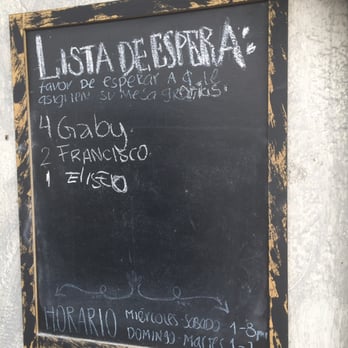 LISTA DE ESPERA:
favor de esperar A q' le
asignen su mesa gracias.
4 Gaby.
2 FRANCISCO.
1 ELISEO
HORARIO MIÉRCOLES-SABADO 1-8pm
DOMINGO-MARTES 1-7